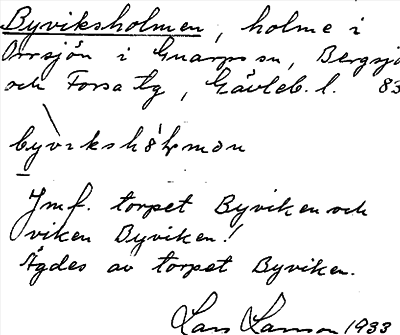 Byviksholmen, holme i
Orrsjön i Gnarps sn, Bergsjö
och Forsa tg, Gävleb. l. 83
byvikshòłmǝn
Jmf. torpet Byviken och
viken Byviken!
Ägdes av torpet Byviken.
Lars Larsson 1933